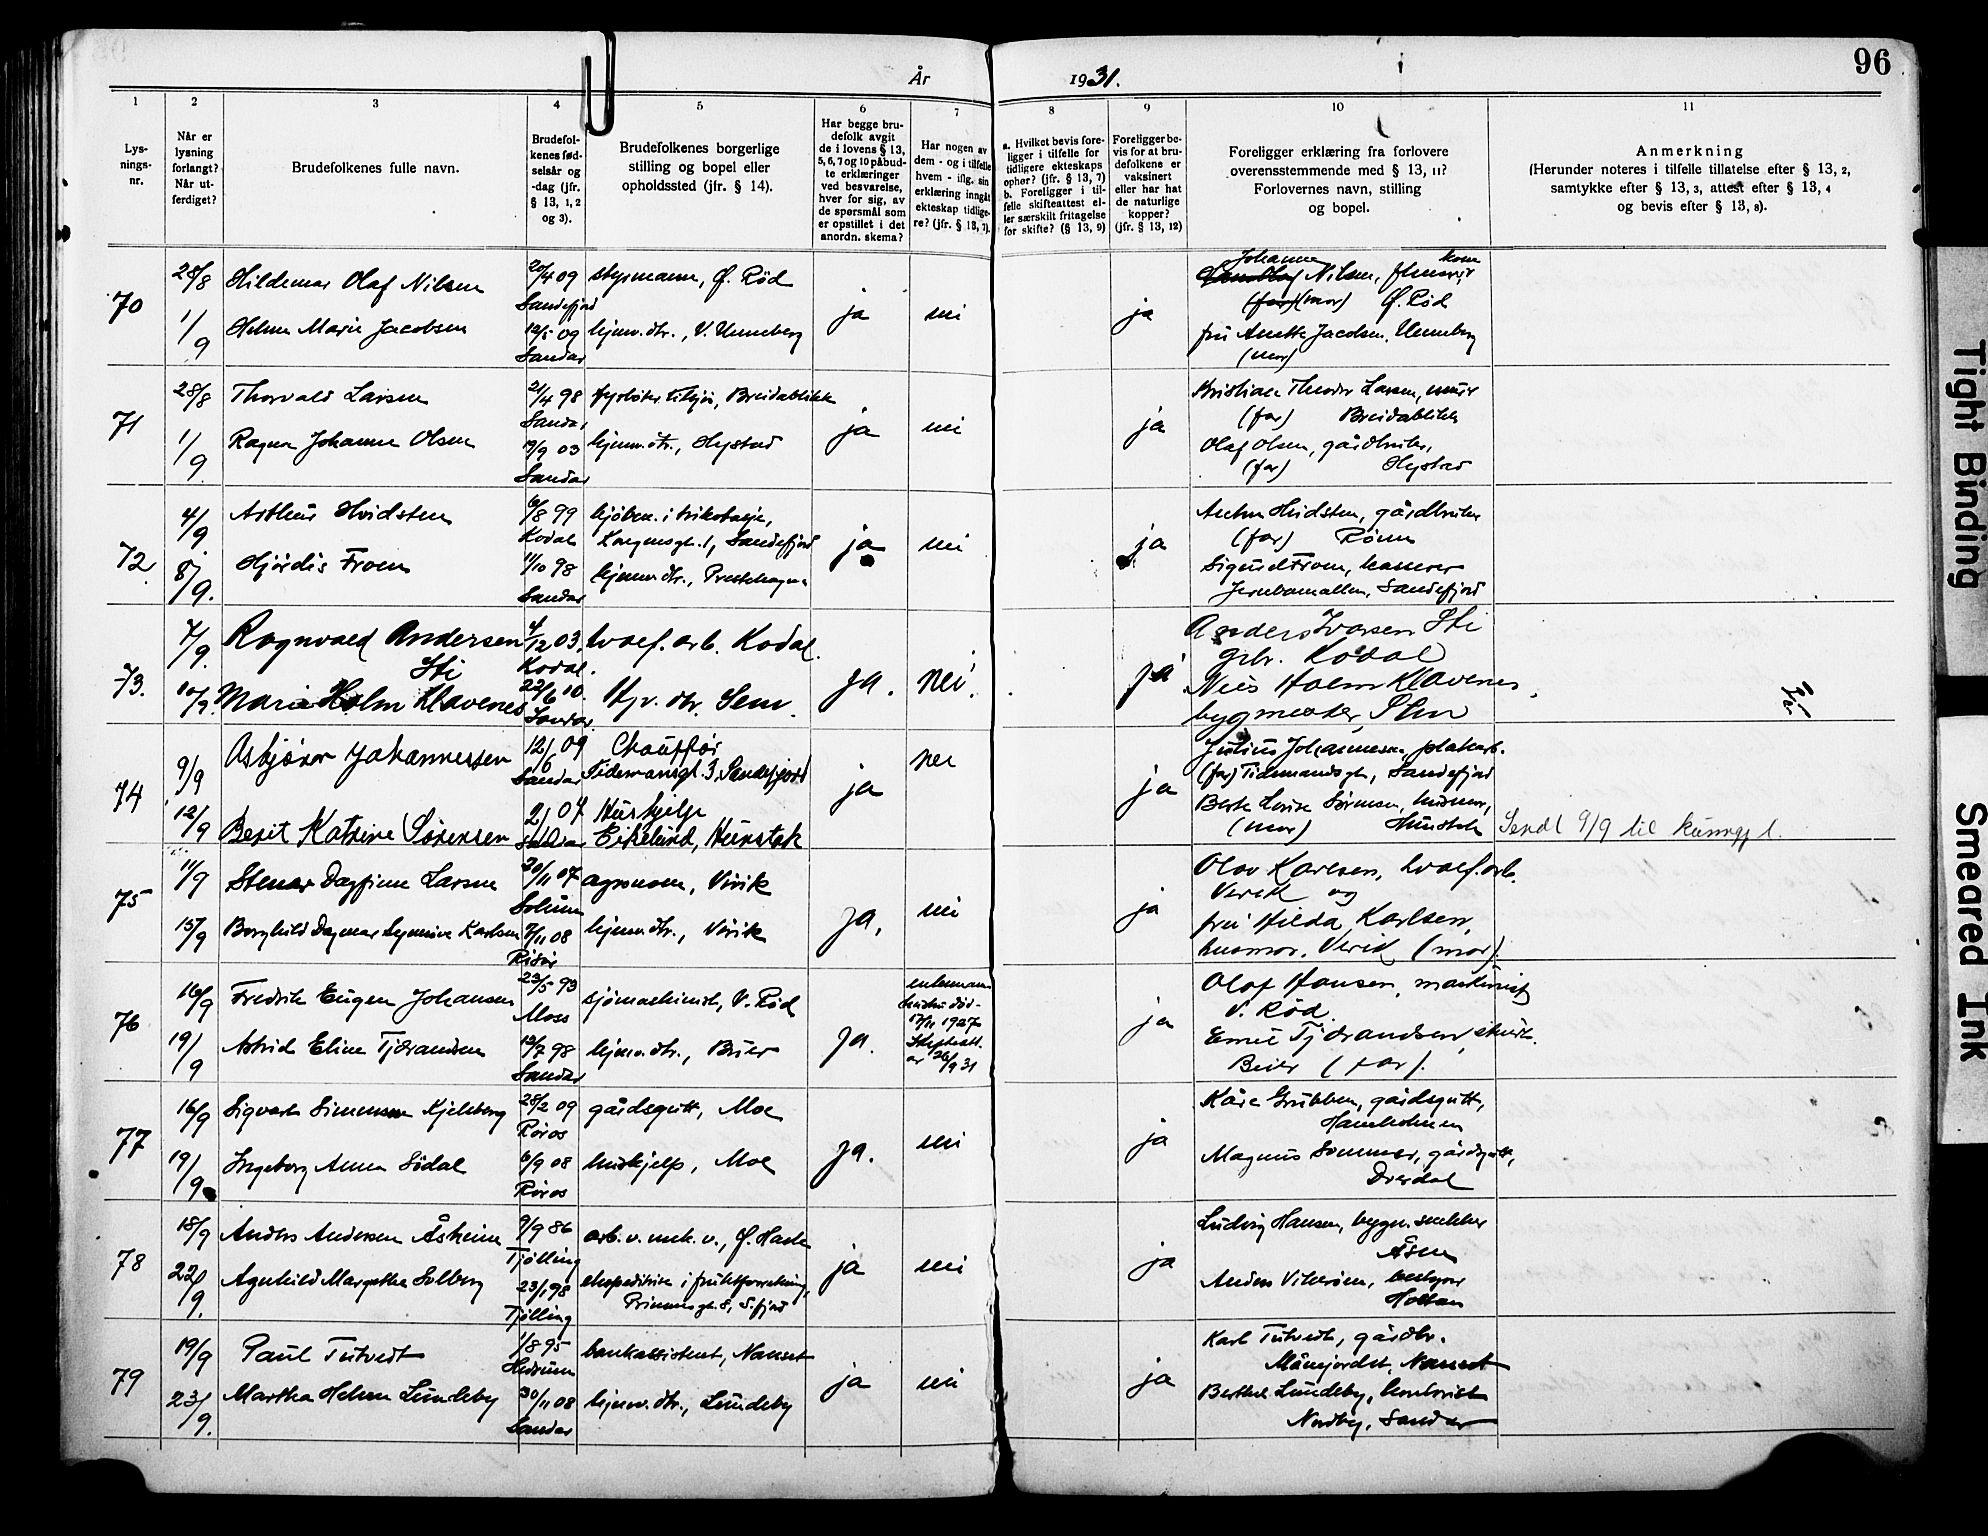 År 1931.
96
1 2 3 4 5 6 7 8 9 10 11
Lys-
nings-
nr.
Når er
lysning
forlangt?
Når ut-
ferdiget?
Brudefolkenes fulle navn.
Brudefol-
kenes fød-
selsår og
-dag (jfr.
§ 13, 1, 2
og 3).
Brudefolkenes borgerlige
stilling og bopel eller
opholdssted (jfr. § 14).
Har begge bru-
defolk avgit
de i lovens § 13,
5, 6, 7 og 10 påbud-
te erklæringer
ved besvarelse,
hver for sig, av
de spørsmål som
er opstillet i det
anordn. skema?
Har nogen av
dem - og i tilfelle
hvem - iflg. sin
erklæring inngåt
ekteskap tidlige-
re? (jfr. § 13, 7).
a. Hvilket bevis fore-
ligger i tilfelle for
tidligere ekteskaps
ophør? (jfr. § 13, 7)
b. Foreligger i til-
felle skifteattest el-
ler særskilt fritagelse
for skifte? (§ 13, 9)
Foreligger be-
vis for at bru-
defolkene er
vaksinert
eller har hat
de naturlige
kopper?
(jfr. § 13, 12)
Foreligger erklæring fra forlovere
overensstemmende med § 13, 11?
Forlovernes navn, stilling
og bopel.
Anmerkning
(Herunder noteres i tilfelle tillatelse efter § 13, 2,
samtykke efter § 13, 3, attest efter § 13, 4
og bevis efter § 13, 8).
70
28/8 Hildemar Olaf Nilsen 20/4 09 styrmann, Ø. Rød
Sandefjord
1/9 Helene Marie Jacobsen 12/5 09 hjemv. dtr., V. Unneberg
Sandar
ja nei ja
Johanne Nilsen,
(far) (mor) Ø. Rød
fru Anette Jacobsen, Unneberg
(mor)
71
28/8 Thorvald Larsen 21/4 98 Breidablikk
Sandar
1/9 Ragna Johanne Olsen 19/9 03 hjemv. dtr., Hystad
Sandar
ja nei ja
Kristian Theodor Larsen, murer
(far) Breidablikk
Olaf Olsen, gårdbruker,
(far) Hystad
72
4/9 Arthur Hvidsten 6/8 99 kjøbm. i trikotasje,
Kodal Kongensgt. 1, Sandefjord
8/9. Hjørdis Froen 11/10 98 hjemv. dtr., Prestehagen
Sandar
ja nei ja
Anton Hvidsten, gårdbruker
(far)
Sigurd Froen, kasserer
Jernbanealleen, Sandefjord
73.
7/9. Ragnvald Andersen 4/12 03. hvalf. arb. Kodal.
Sti Kodal.
10/9. Marie Holm Klavenes 22/6 10. Hjv. dtr. Sem.
Sandar.
ja. nei. ja
Anders Ivarsen Sti
gbr. Kodal
Nils Holm Klavenes,
bygmester, Sem
74
9/9 Asbjörn Johannessen 12/6 09 Chauffør
Sandar Tidemansgt. 3, Sandefjord
12/9 Berit Katrine Sørensen 07 Hushjelp
Sandar Eikelund, Hunstok
ja nei ja
Julius Johannesen, platearb.
(far) Tidemandsgt., Sandefjord
Berte Lovise Sørensen, husmor,
(mor) Hunstok
Sendt 9/9 til kunngj.
75
11/9 Stenar Dagfinn Larsen 20/11 07 agronom, Virik
Solum
15/9 Borghild Dagmar Synnøve Karlsen 7/11 08 hjemv. dtr., Virik
Risør
ja, nei ja
Olav Karlsen, hvalf. arb.
Verik og
fru Hilda Karlsen,
husmor. Verik (mor).
76
16/9 Fredrik Eugen Johansen 23/5 93 sjømaskinist, V. Rød
Moss
19/9 Astrid Eline Tjørandsen 19/7 98 hjemv. dtr., Buer
Sandar
ja.
enkemann
hustru død
17/11 1927
Skifteatt.
av 26/9 31
ja
Olaf Hansen, maskinist
V. Rød.
Emil Tjørandsen,
Buer (far).
77
16/9 Sigvart Simensen Kjelsberg 28/2 09 gårdsgutt, Moe
Røros
19/9 Ingeborg Anna Sødal 6/9 08 hushjelp, Moe
Røros
ja. nei ja
Kåre Grubben, gårdsgutt,
Haneholmen
Magnus Sommer, gårdsgutt,
78
18/9 Anders Andersen Åsheim 9/9 86 arb. v. mek. v., Ø. Hasle
Tjølling
22/9. Agnhild Margrethe Solberg 23/1 98 ekspeditrise i fruktforretning,
Tjølling Prinsensgt. 8, S.fjord
ja nei ja
Ludvig Hansen, bygn. snekker
Åsen
Anders Vikerøen, bestyrer
79
19/9 Paul Tutvedt 1/8 95 bankassistent, Nanset
Hedrum
23/9. Martha Helene Lundeby 30/11 08 hjemv. dtr., Lundeby
Sandar
ja nei ja
Karl Tutvedt, gårdbr.
Månejordet, Nanset
Berthel Lundeby, kontorist
Nordby, Sandar
Tight Binding
Smeared Ink